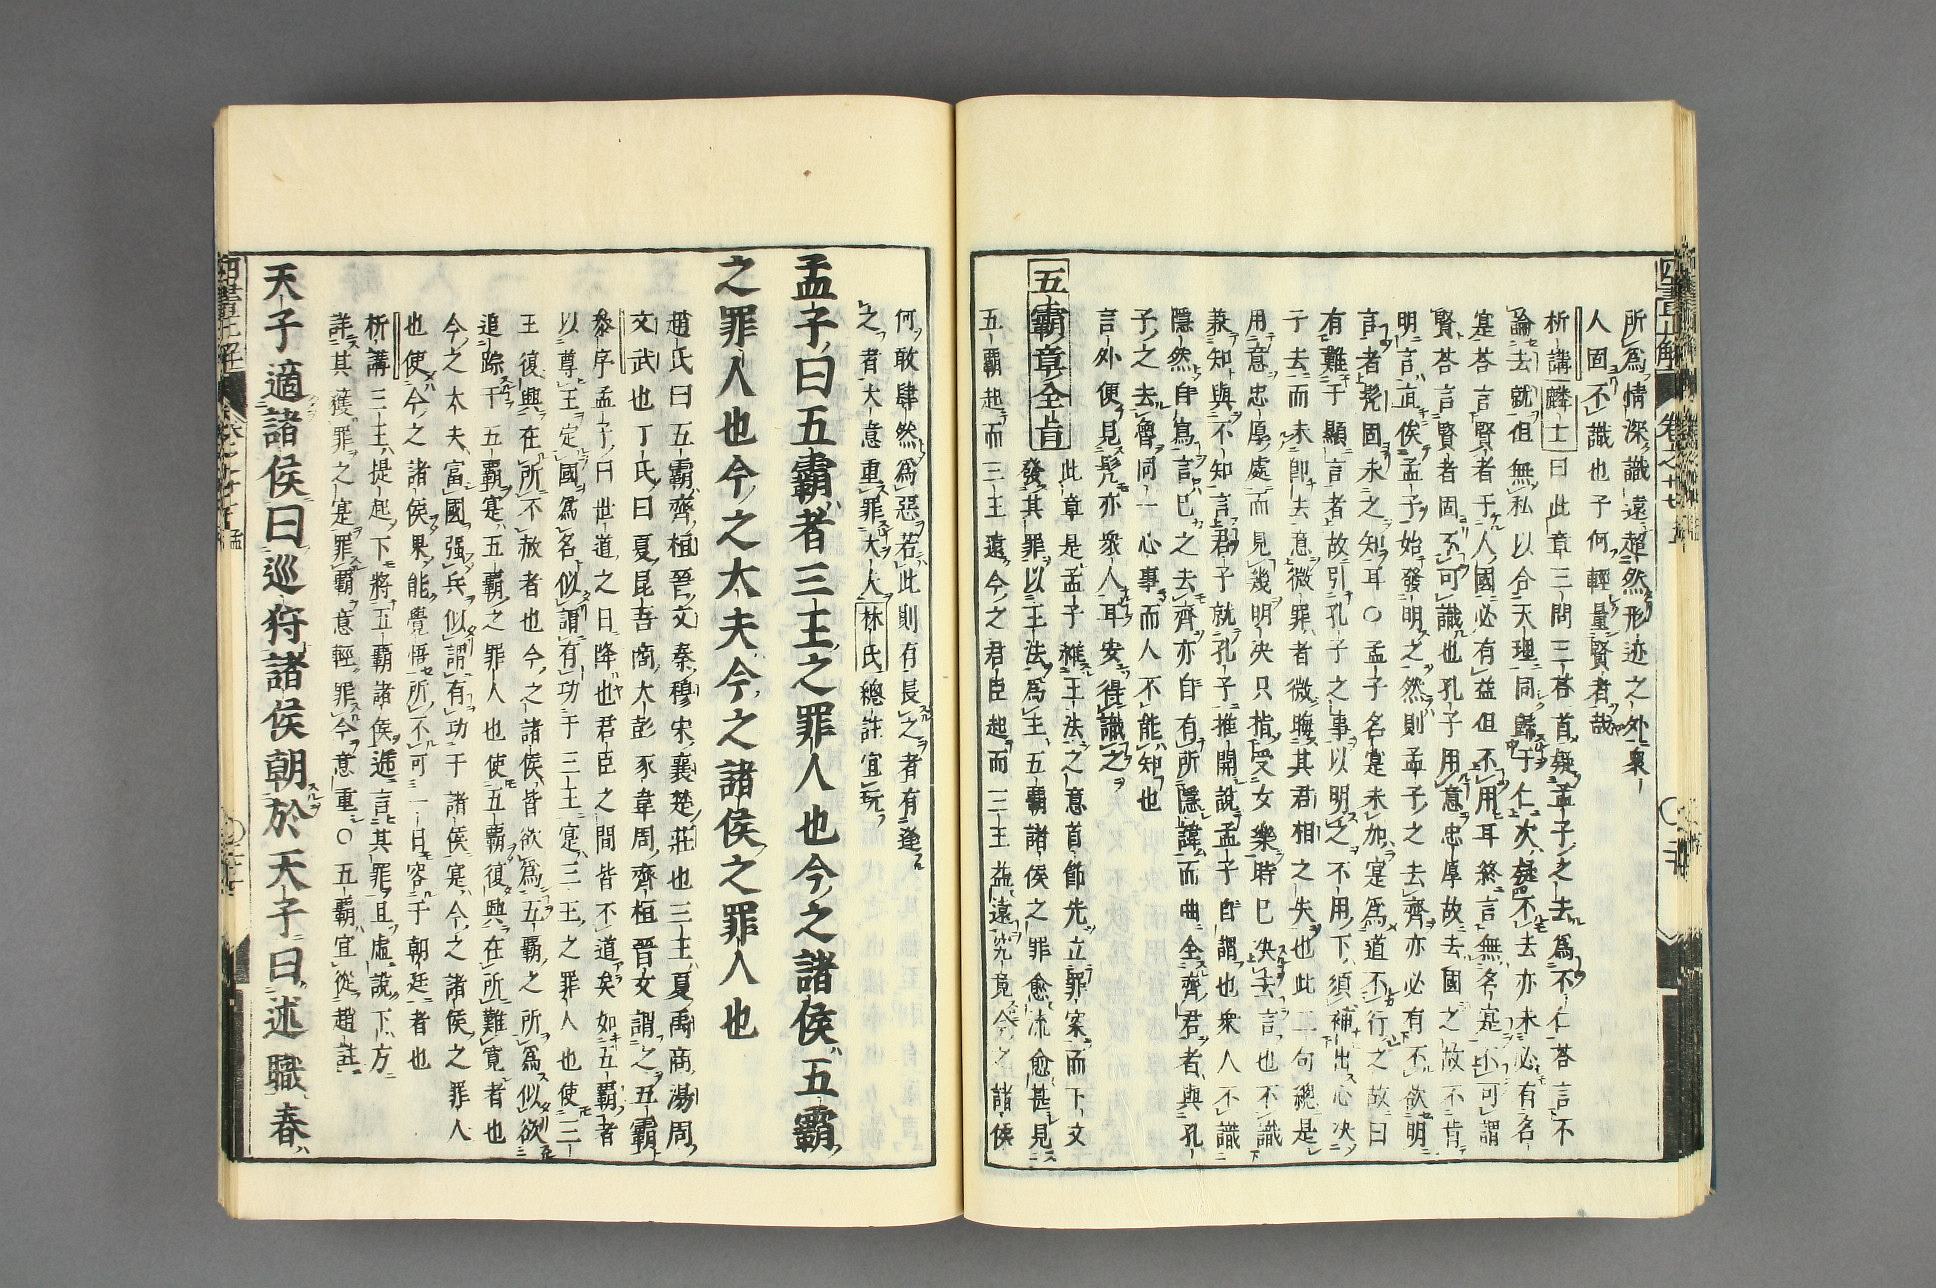 所爲情深識遠超然形迹之外衆
人固不識也予何輕量賢者哉
析講麟士曰此章三問三荅首疑孟子之去爲不仁荅言不
論去就但無私以合天理同歸于仁次疑不去亦未必有名
寔荅言賢者于人國必有益但不用耳終言無名寔不可謂
賢荅言賢者固不可識也孔子用意忠厚故去國之故不肯
明言直俟孟子始發明之然則孟子之去齊亦必有不欲明
言者髡固未之知耳〇孟子名寔未加寔爲道不行之故曰
有難于顯言者故引孔子之事以明之不用下須補出心决
于去而未卽去意微罪者微晦其君相之失也此二句總是
用意忠厚處而見幾明决只指受女樂時已决去言也不識
兼知與不知言君子就孔子推開說孟子自謂也衆人不識
隱然自寫言己之去齊亦自有所隱諱而曲全齊君者與孔
子之去魯同一心事而人不能知也
言外便見髡亦衆人耳安得識之
五霸章全旨
此章是孟子維王法之意首節先立罪案而下文
發其罪以王法爲主五霸諸侯之罪愈流愈甚見
五霸起而三王遠今之君臣起而三王益遠究竟今之諸侯
何敢肆然爲惡若此則有長之者有逢
之者大意重罪大人林氏總註宜玩
孟子曰五霸者三王之罪人也今之諸侯五霸
之罪人也今之大夫今之諸侯之罪人也
趙氏曰五霸齊桓晉文秦穆宋襄楚莊也三王夏禹商湯周
文武也丁氏曰夏昆吾商大彭豕韋周齊桓晉文謂之五霸
黎字孟子曰世道之日降也君臣之間皆不道矣如五霸者
以尊王定國爲名似謂有功于三王寔三王之罪人也使三
王復興在所不赦者也今之諸侯皆欲爲五霸之所爲似欲
追踪于五霸寔五霸之罪人也使五霸復興在所難寬者也
今之大夫富國强兵似謂有功于諸侯寔今之諸侯之罪人
也使今之諸侯果能覺悟所不可一日容于朝廷者也
析講三王提起下將五霸諸侯遞言其罪且虛說下方
詳其獲罪之寔罪霸意輕罪今意重〇五霸宜從趙註
天子適諸侯曰巡狩諸侯朝於天子曰述職春